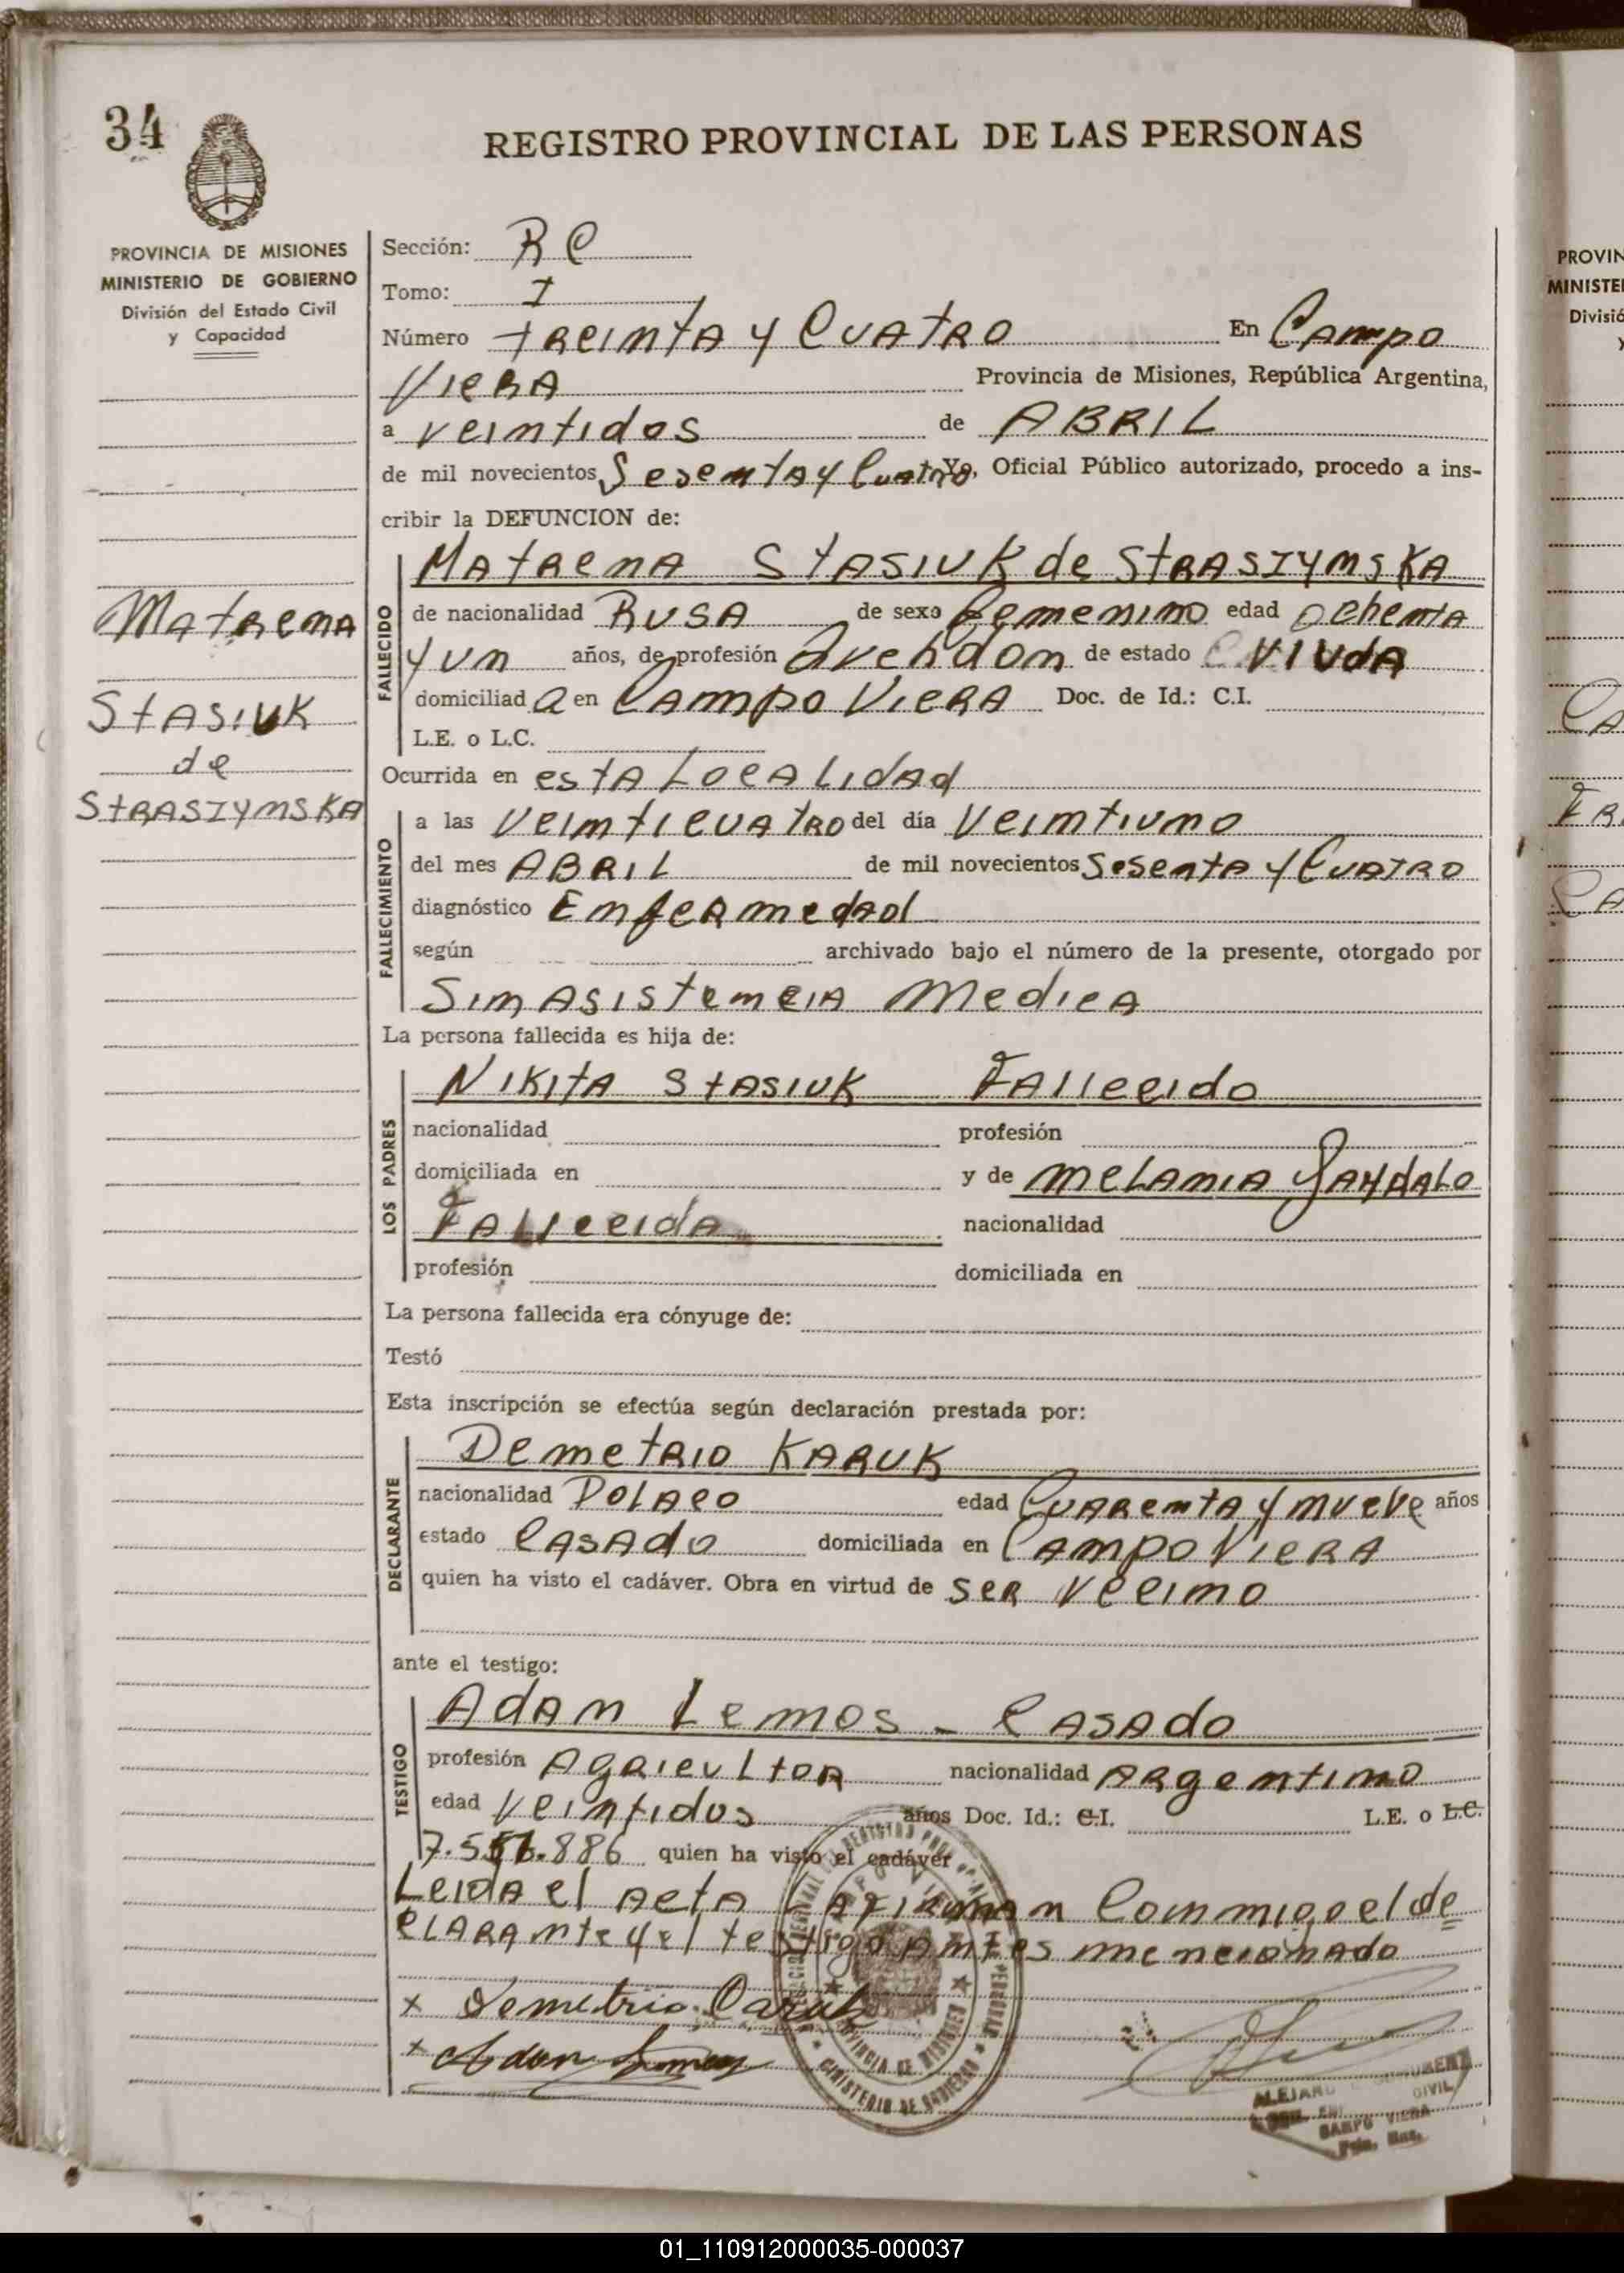 34
REGISTRO PROVINCIAL DE LAS PERSONAS
PROVINCIA DE MISIONES
MINISTERIO DE GOBIERNO
División del Estado Civil
y Capacidad
Matrena
Stasiuk
de
Straszymska
Sección: RC
Tomo: I
Número treinta y Cuatro En Campo
Viera Provincia de Misiones, República Argentina,
a veintidos de ABRIL
de mil novecientos Sesenta y Cuatro Yo, Oficial Público autorizado, procedo a ins-
cribir la DEFUNCION de:
FALLECIDO
Matrena Stasiuk de Straszymska
de nacionalidad Rusa de sexo femenino edad ochenta
y un años, de profesión de estado viuda
domiciliada en Campo Viera Doc. de Id.: C.I.
L.E. o L.C.
Ocurrida en esta Localidad
FALLECIMIENTO
a las Veinticuatro del día Veintiuno
del mes ABRIL de mil novecientos Sesenta y Cuatro
diagnóstico Enfermedad
según archivado bajo el número de la presente, otorgado por
Sin Asistencia Medica
La persona fallecida es hija de:
LOS PADRES
Nikita Stasiuk Fallecido
nacionalidad profesión
domiciliada en y de Melania
Fallecida nacionalidad
profesión domiciliada en
La persona fallecida era cónyuge de:
Testó
Esta inscripción se efectúa según declaración prestada por:
DECLARANTE
Demetrio Karuk
nacionalidad Polaco edad Cuarenta y nueve años
estado Casado domiciliada en Campo Viera
quien ha visto el cadáver. Obra en virtud de ser Vecino
ante el testigo:
TESTIGO
Adan Lemos - Casado
profesión Agricultor nacionalidad Argentino
edad Veintidos años Doc. Id.: C.I. L.E. o L.C.
886 quien ha visto el cadáver
Leida el acta firman Conmigo el de
clarante y el testigo antes mencionado
x Demetrio Caruk
x Adan Lemos
PROVINCIA DE MISIONES
MINISTERIO DE GOBIERNO
CIVIL
CAMPO VIERA
PROVIN
MINISTE
Divisió
y
01_110912000035-000037